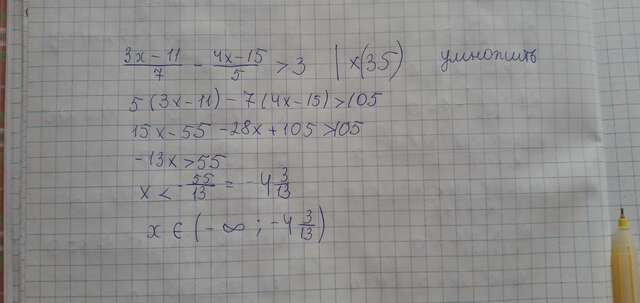 (3x-11)/7 - (4x-15)/5 > 3 | x(35) умножить
5(3x-11)-7(4x-15)>105
15x-55-28x+105>105
-13x>55
x < -55/13 = -4 3/13
x ∈ (-∞; -4 3/13)